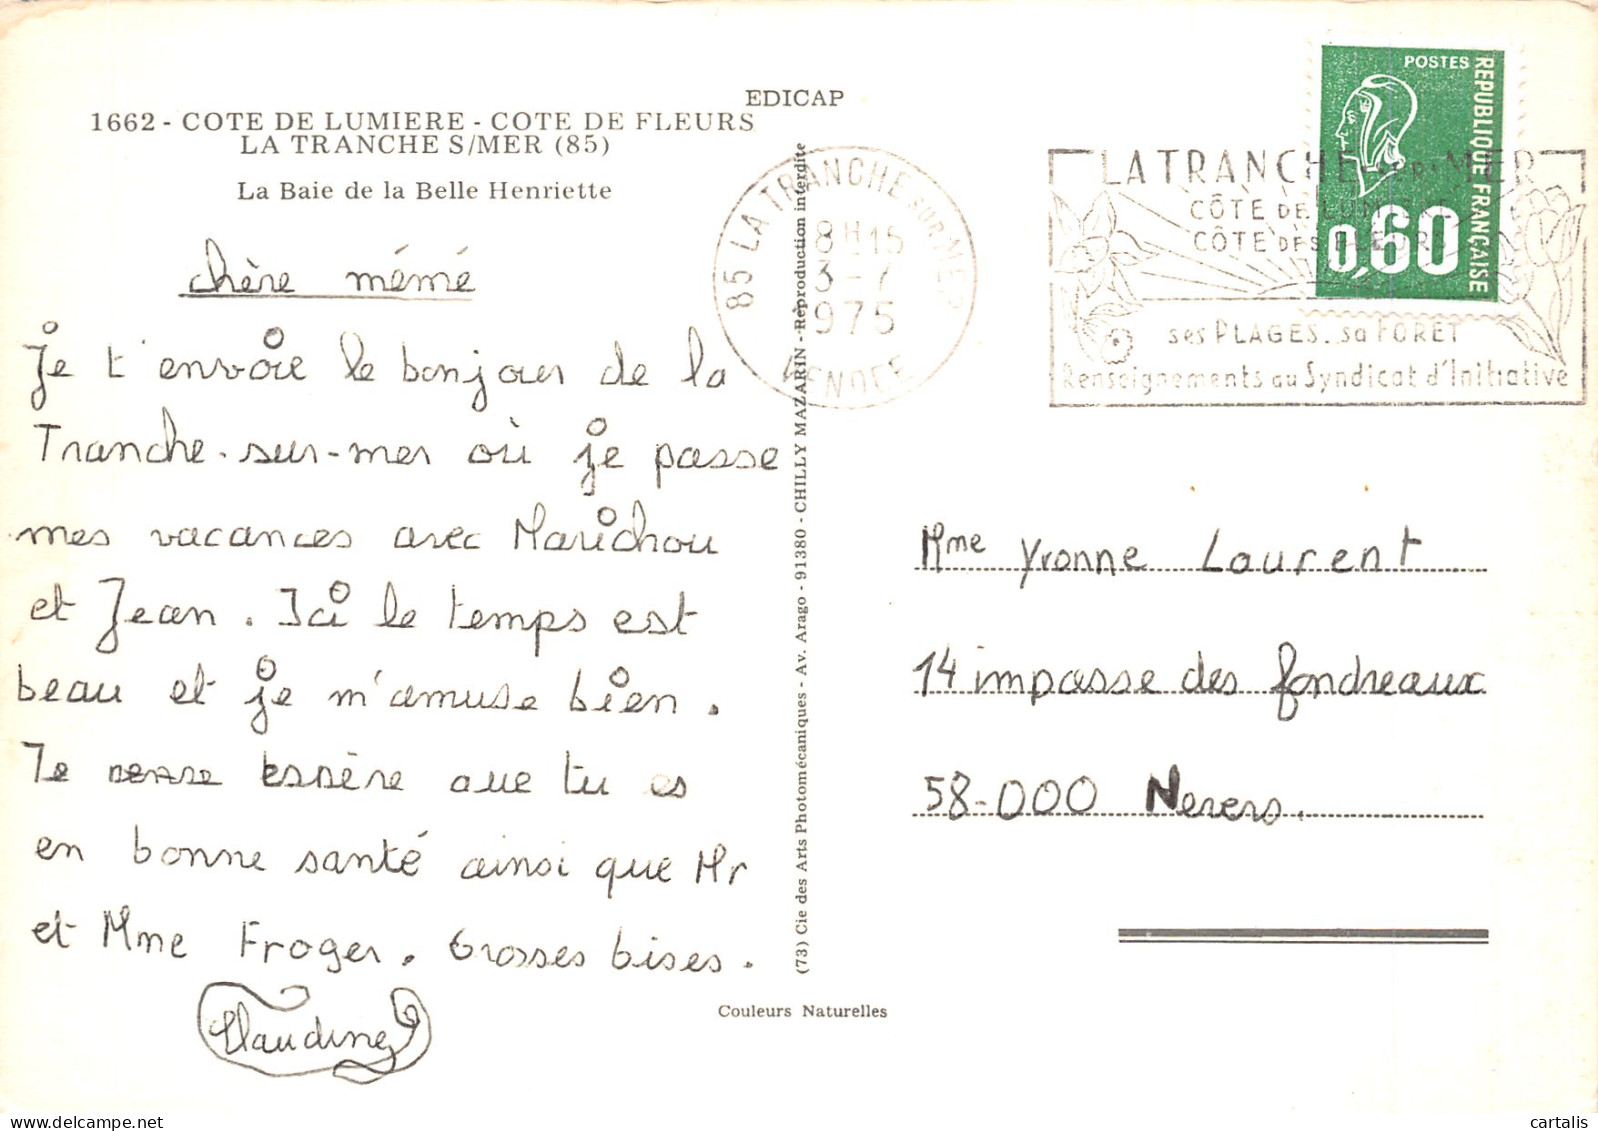 EDICAP
1662 - COTE DE LUMIERE - COTE DE FLEURS
LA TRANCHE S/MER (85)
La Baie de la Belle Henriette
chère mémé
Je t'envoie le bonjour de la
Tranche-sur-mer où je passe
mes vacances avec Marichou
et Jean. Ici le temps est
beau et je m'amuse bien.
Je pense espère que tu es
en bonne santé ainsi que Mr
et Mme Froger. Grosses bises.
Claudine
(73) Cie des Arts Photomécaniques - Av. Arago - 91380 - CHILLY MAZARIN - Reproduction interdite
Couleurs Naturelles
85 LA TRANCHE SUR MER
8H15
3-7
1975
VENDEE
POSTES
REPUBLIQUE FRANÇAISE
0,60
LA TRANCHE SUR MER
CÔTE DE LUMIÈRE
CÔTE DES FLEURS
ses PLAGES. sa FORET
Renseignements au Syndicat d'Initiative
Mme Yvonne Laurent
14 impasse des fondreaux
58-000 Nevers.
cartalis